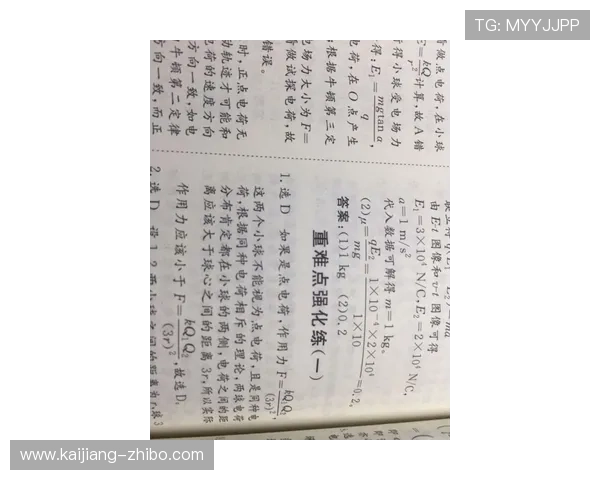 TG: MYYJJPP
看做点电荷,在小球
E=kQ/r²计算,故 A 错
得小球受电场力
得:E₁=mgtanα/q,
电荷,在 O 点产生
;根据牛顿第三定
电场力大小为 F=
看做试探电荷,故
错误。
时,正点电荷无
动轨迹才可能和
电荷的速度方向
方向一致,如电
,牛顿第二定律
方向一致,而正
由 E-t 图像和 v-t 图像可得
E₁=3×10⁴ N/C,E₂=2×10⁴ N/C,
a=1 m/s²
代入数据可解得 m=1 kg。
(2)μ=qE₂/mg=1×10⁻⁴×2×10⁴/1×10=0.2,
答案:(1)1 kg (2)0.2
重难点强化练(一)
1. 选 D 如果是点电荷,作用力 F=kQ₁Q₂/(3r)²,
这两个小球不能视为点电荷,且是同种电
荷,根据同种电荷相斥的理论,两球电荷
分布肯定都在小球的两侧,电荷之间的距
离应该大于球心之间的距离 3r,所以实际
作用力应该小于 F=kQ₁Q₂/(3r)²,故选 D。
2. 选 D
www.kaijiang-zhibo.com